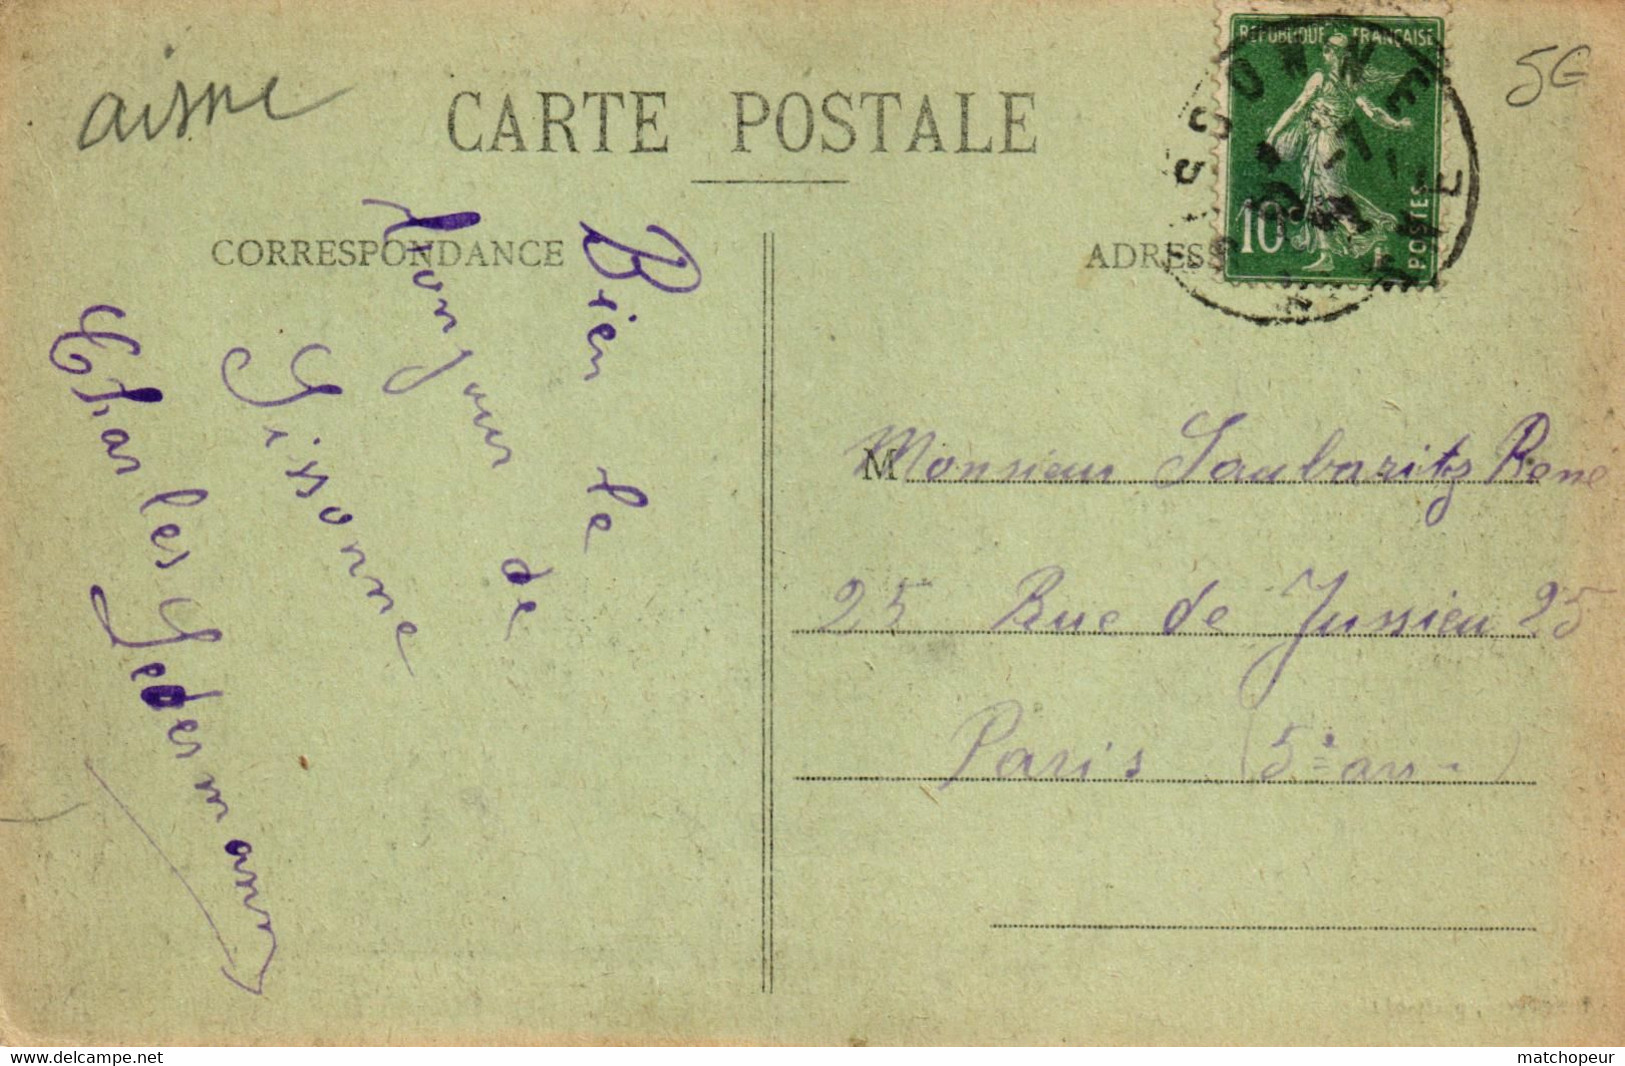 aisne
CARTE POSTALE
5€
RÉPUBLIQUE FRANÇAISE
10
POSTES
SISSONNE
AISNE
CORRESPONDANCE
ADRESS
Bien le
bonjour de
Sissonne
Charles Ledermann
Monsieur Saubaritz René
25 Rue de Jussieu 25
Paris (5e arr-)
www.delcampe.net
matchopeur